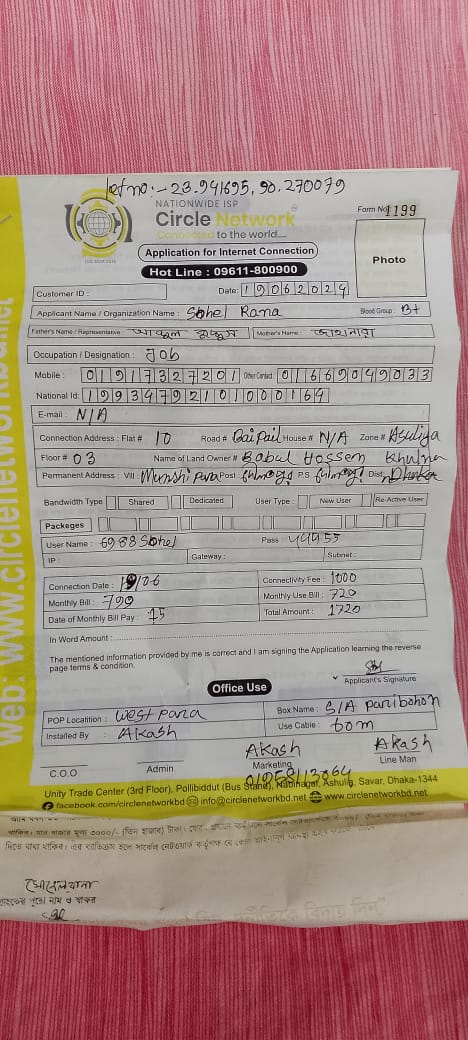 Lat no:- 23.941695, 90.270079
NATIONWIDE ISP
Circle Network
Connected to the world....
Form No: 1199
Photo
Application for Internet Connection
Hot Line : 09611-800900
Customer ID : Date: 19062024
Applicant Name / Organization Name : Sohel Rana Blood Group : B+
Father's Name / Representative : আব্দুল কুদ্দুস Mother's Name :
Occupation / Designation : Job
Mobile : 01917327201 Other Contact 01669049033
National Id: 19934792101000164
E-mail : N/A
Connection Address : Flat # 10 Road # Baipail House # N/A Zone # Asuliya
Floor # 03 Name of Land Owner # Babul Hossen Khulna
Permanent Address : Vill : Munshi Para Post P.S Dist: Dhaka
Bandwidth Type Shared Dedicated User Type : New User Re-Active User
Packeges
User Name : 6988 Sohel Pass 44955
IP : Gateway : Subnet :
Connection Date : 19/06 Connectivity Fee : 1000
Monthly Bill : 799 Monthly Use Bill : 720
Date of Monthly Bill Pay : 15 Total Amount : 1720
In Word Amount :
The mentioned information provided by me is correct and I am signing the Application learning the reverse
page terms & condition.
Applicant's Signature
Office Use
POP Locatition : West Para Box Name : S/A Paribohon
Installed By : Akash Use Cable : 60m
Akash Akash
C.O.O Admin Marketing Line Man
01958113864
Unity Trade Center (3rd Floor), Pollibiddut (Bus Stand), Nabinagar, Ashulia, Savar, Dhaka-1344
facebook.com/circlenetworkbd info@circlenetworkbd.net www.circlenetworkbd.net
web: www.circlenetworkbd.net
সোহেল রানা
গ্রাহকের পুরো নাম ও স্বাক্ষর